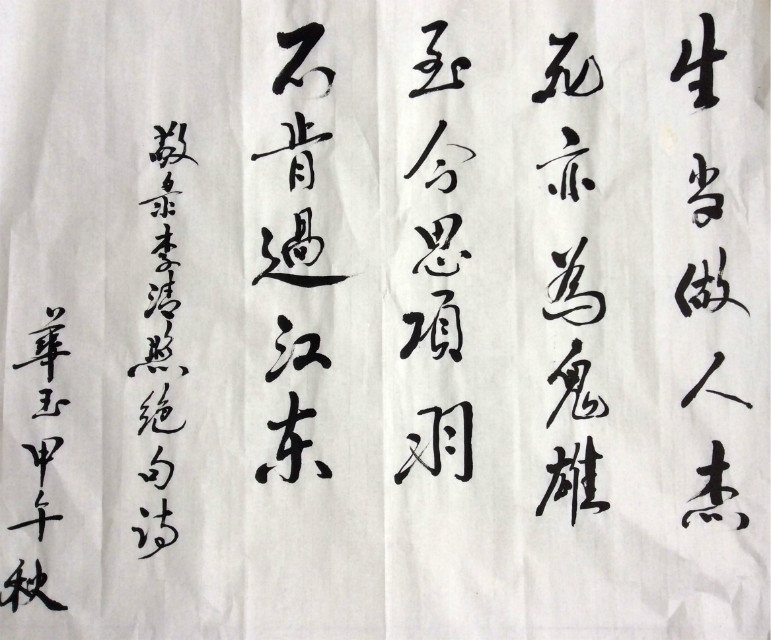 生当做人杰
死亦為鬼雄
至今思項羽
不肯過江东
敬录李清照绝句诗
華玉甲午秋